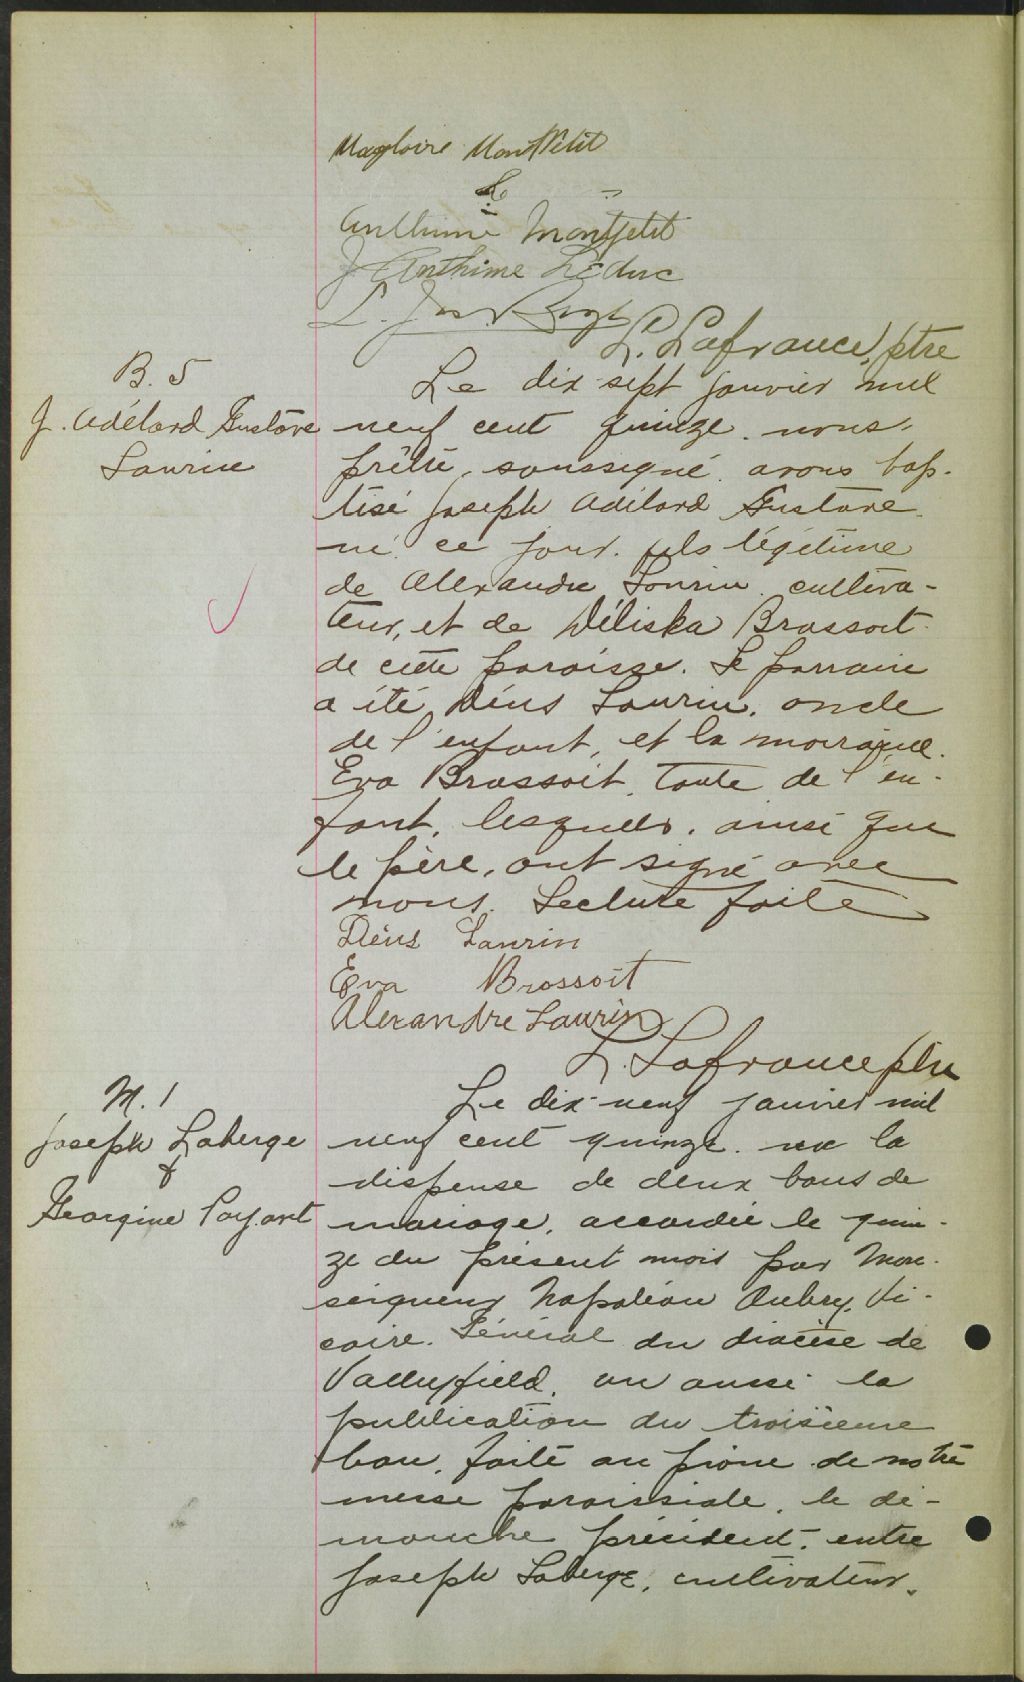 Magloire Montpetit
Anthime Montpetit
J Anthime Leduc
L. Jos.
L. Lafrance, ptre
B. 5
J. Adélard Gustave
Laurin
Le dix sept janvier mil
neuf cent quinze. nous.
prêtre, soussigné avons bap-
tisé Joseph Adélard Gustave
né ce jour. fils légitime
de Alexandre Laurin, cultiva-
teur, et de Déliska Brossoit
de cette paroisse. Le parrain
a été Déus Laurin, oncle
de l'enfant, et la marraine.
Eva Brossoit, tante de l'en-
fant, lesquels, ainsi que
le père, ont signé avec
nous. Lecture faite
Déus Laurin
Eva Brossoit
Alexandre Laurin
L. Lafrance ptre
M. 1
Joseph Laberge
&
Georgine Payant
Le dix-neuf janvier mil
neuf cent quinze. vu la
dispense de deux bans de
mariage, accordée le quin-
ze du présent mois par Mon-
seigneur Napoléon Aubry, Vi-
caire. Général du diocèse de
Valleyfield, vu aussi la
publication du troisième
ban, faite au prône de notre
messe paroissiale, le di-
manche précédent, entre
Joseph Laberge, cultivateur,